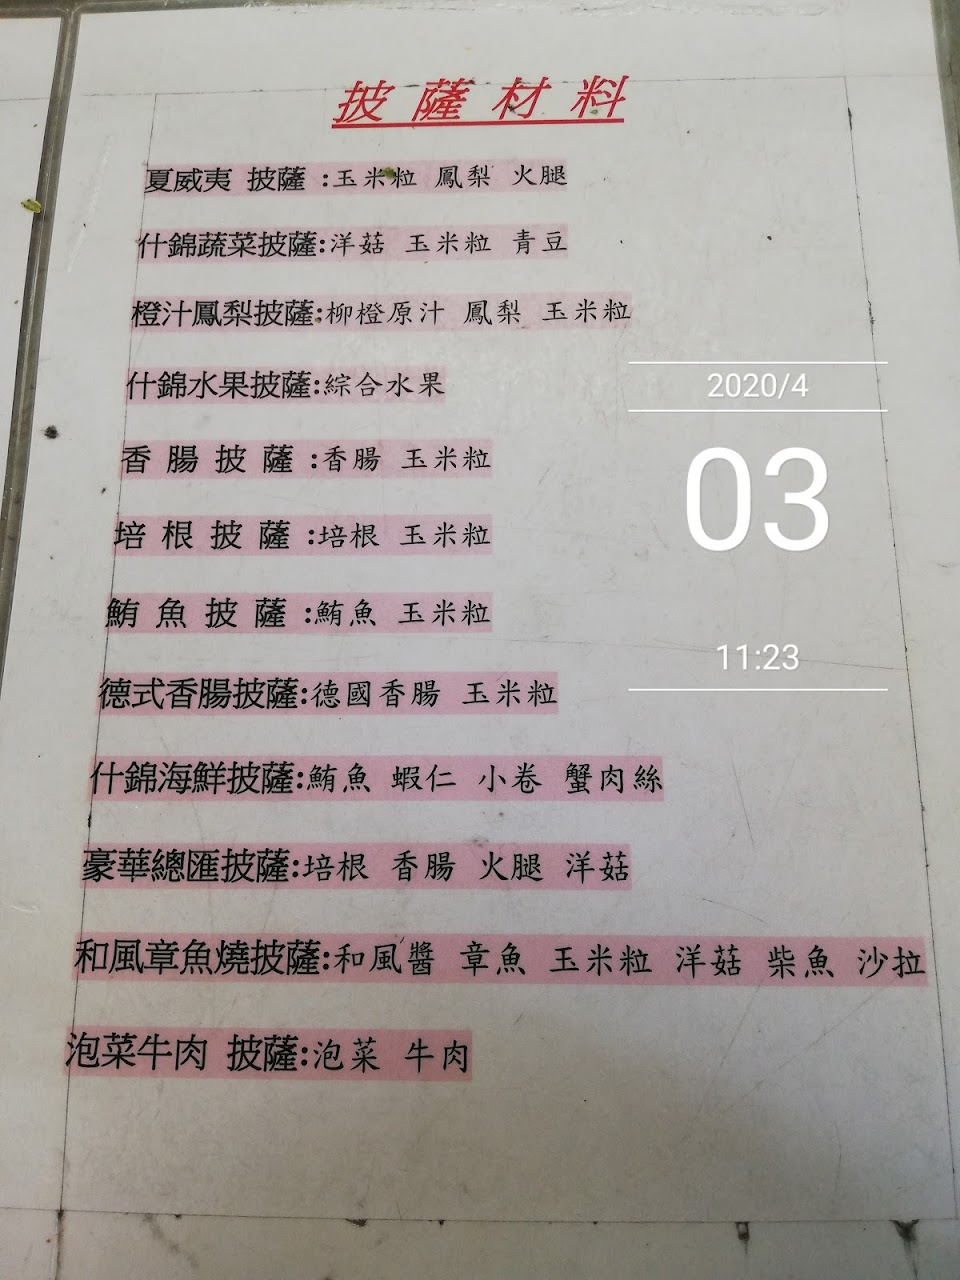 披薩材料
夏威夷 披薩 :玉米粒 鳳梨 火腿
什錦蔬菜披薩:洋菇 玉米粒 青豆
橙汁鳳梨披薩:柳橙原汁 鳳梨 玉米粒
什錦水果披薩:綜合水果
2020/4
香 腸 披 薩 :香腸 玉米粒
03
培 根 披 薩 :培根 玉米粒
鮪 魚 披 薩 :鮪魚 玉米粒
11:23
德式香腸披薩:德國香腸 玉米粒
什錦海鮮披薩:鮪魚 蝦仁 小卷 蟹肉絲
豪華總匯披薩:培根 香腸 火腿 洋菇
和風章魚燒披薩:和風醬 章魚 玉米粒 洋菇 柴魚 沙拉
泡菜牛肉 披薩:泡菜 牛肉